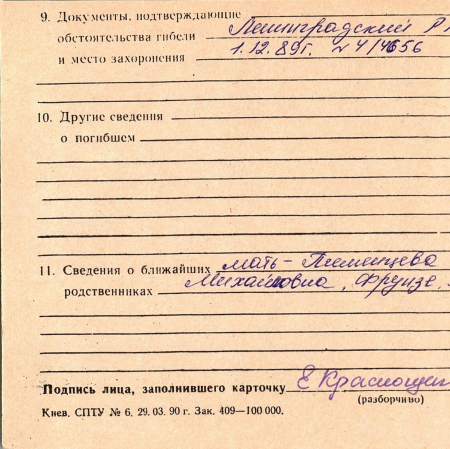 9. Документы, подтверждающие Ленинградский Р
обстоятельства гибели 1.12.89г. № 4/4656
и место захоронения
10. Другие сведения
о погибшем
11. Сведения о ближайших мать –
родственниках Михайловна, Фрунзе
Подпись лица, заполнившего карточку Е Краснощек
(разборчиво)
Киев. СПТУ № 6, 29. 03. 90 г. Зак. 409—100 000.